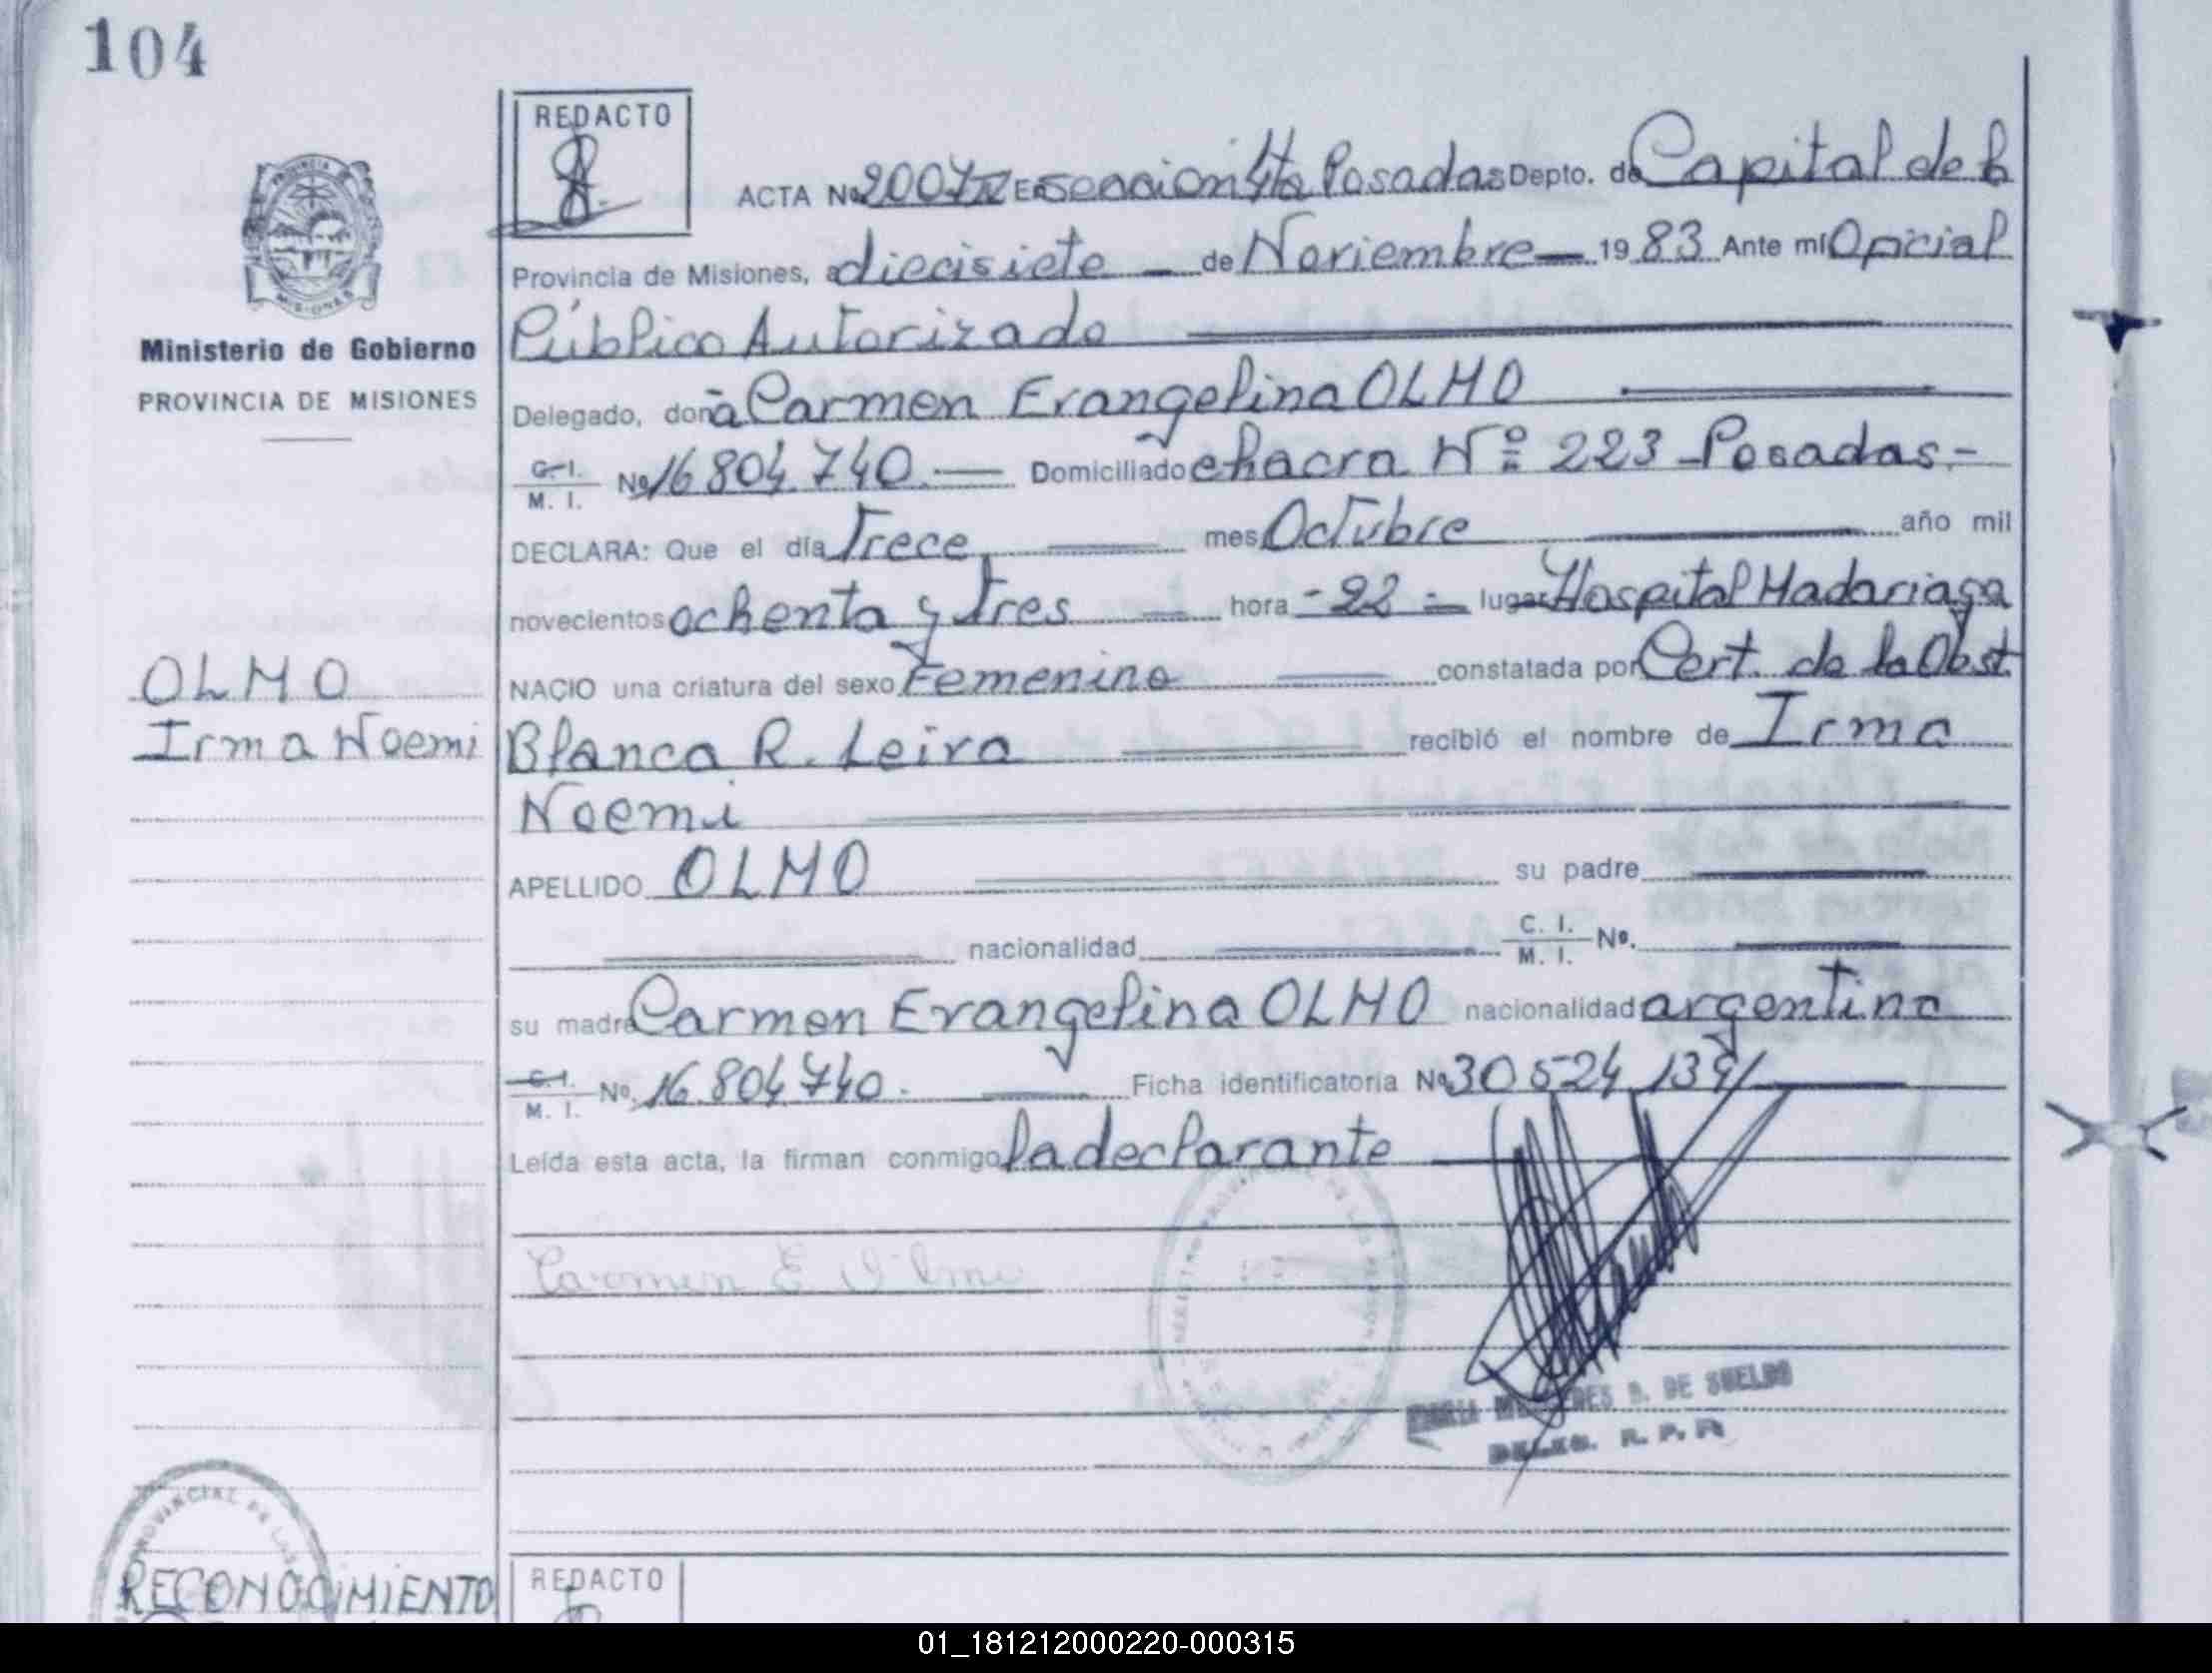 104
REDACTO
PROVINCIA
MISIONES
ACTA Nº 2007 En sección 4ta Posadas Depto. de Capital de la
Provincia de Misiones, a diecisiete de Noviembre 1983 Ante mí Oficial
Ministerio de Gobierno
Público Autorizado
PROVINCIA DE MISIONES
Delegado, doña Carmen Evangelina OLMO
C. I.
M. I. Nº 16.804.740. Domiciliado chacra Nº 223 - Posadas -
DECLARA: Que el día Trece mes Octubre año mil
novecientos ochenta y tres hora - 22 - lugar Hospital Madariaga
OLMO
NACIO una criatura del sexo Femenino constatada por Cert. de la Obst.
Irma Noemi
Blanca R. Leiva recibió el nombre de Irma
Noemi
APELLIDO OLMO su padre
nacionalidad C. I.
M. I. Nº.
su madre Carmen Evangelina OLMO nacionalidad argentina
C. I.
M. I. Nº. 16.804.740. Ficha identificatoria Nº 30 524 139
Leída esta acta, la firman conmigo la declarante
Carmen E Olmo
DE SUELDO
R. P. P.
PROVINCIAL DE LAS
RECONOCIMIENTO
REDACTO
01_181212000220-000315